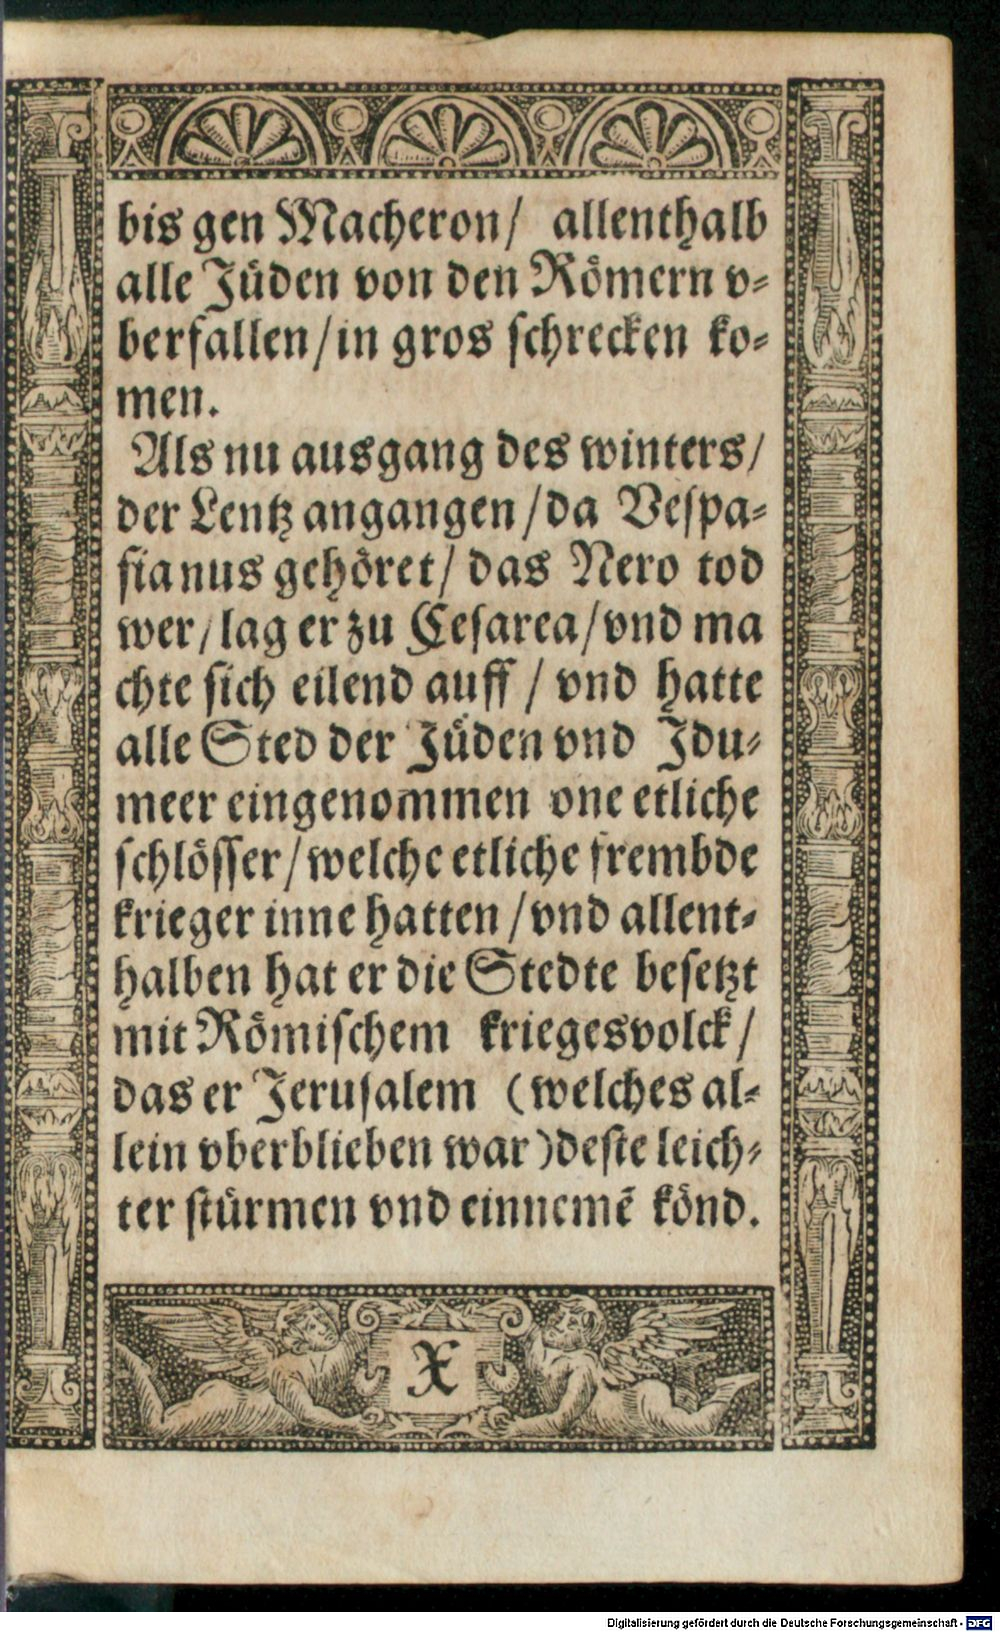 bis gen Macheron/ allenthalb
alle Jüden von den Römern v-
berfallen/in gros schrecken ko-
men.
Als nu ausgang des winters/
der Lentz angangen/da Vespa-
sianus gehöret/ das Nero tod
wer/lag er zu Cesarea/vnd ma
chte sich eilend auff / vnd hatte
alle Sted der Jüden vnd Idu-
meer eingenommen one etliche
schlösser/welche etliche frembde
krieger inne hatten/vnd allent-
halben hat er die Stedte besetzt
mit Römischem kriegesvolck/
das er Jerusalem (welches al-
lein vberblieben war)deste leich-
ter stürmen vnd einnemē könd.
X
Digitalisierung gefördert durch die Deutsche Forschungsgemeinschaft - DFG